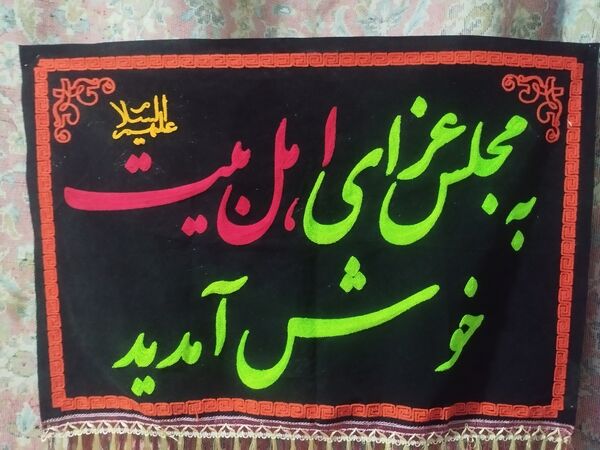 به مجلس عزای اهل بیت علیهم السلام
خوش آمدید